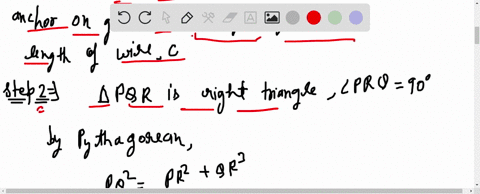 anchor on g
length of wire, c
Step 2⇒ ΔPQR is right triangle, ∠PRQ = 90°
by Pythagorean,
PQ² = PR² + QR²